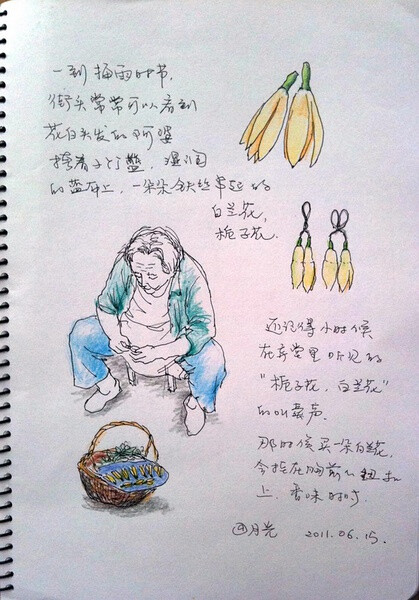 一到梅雨时节,
街头常常可以看到
花白头发的阿婆
挎着 湿润
的蓝布上,一朵朵 丝串起的
白兰花,
栀子花.
还记得小时候
在弄堂里听见的
"栀子花,白兰花"
的叫卖声.
那时候买一朵白兰花,
会挂在胸前 纽扣
上,香味
@月光 2011.06.15.